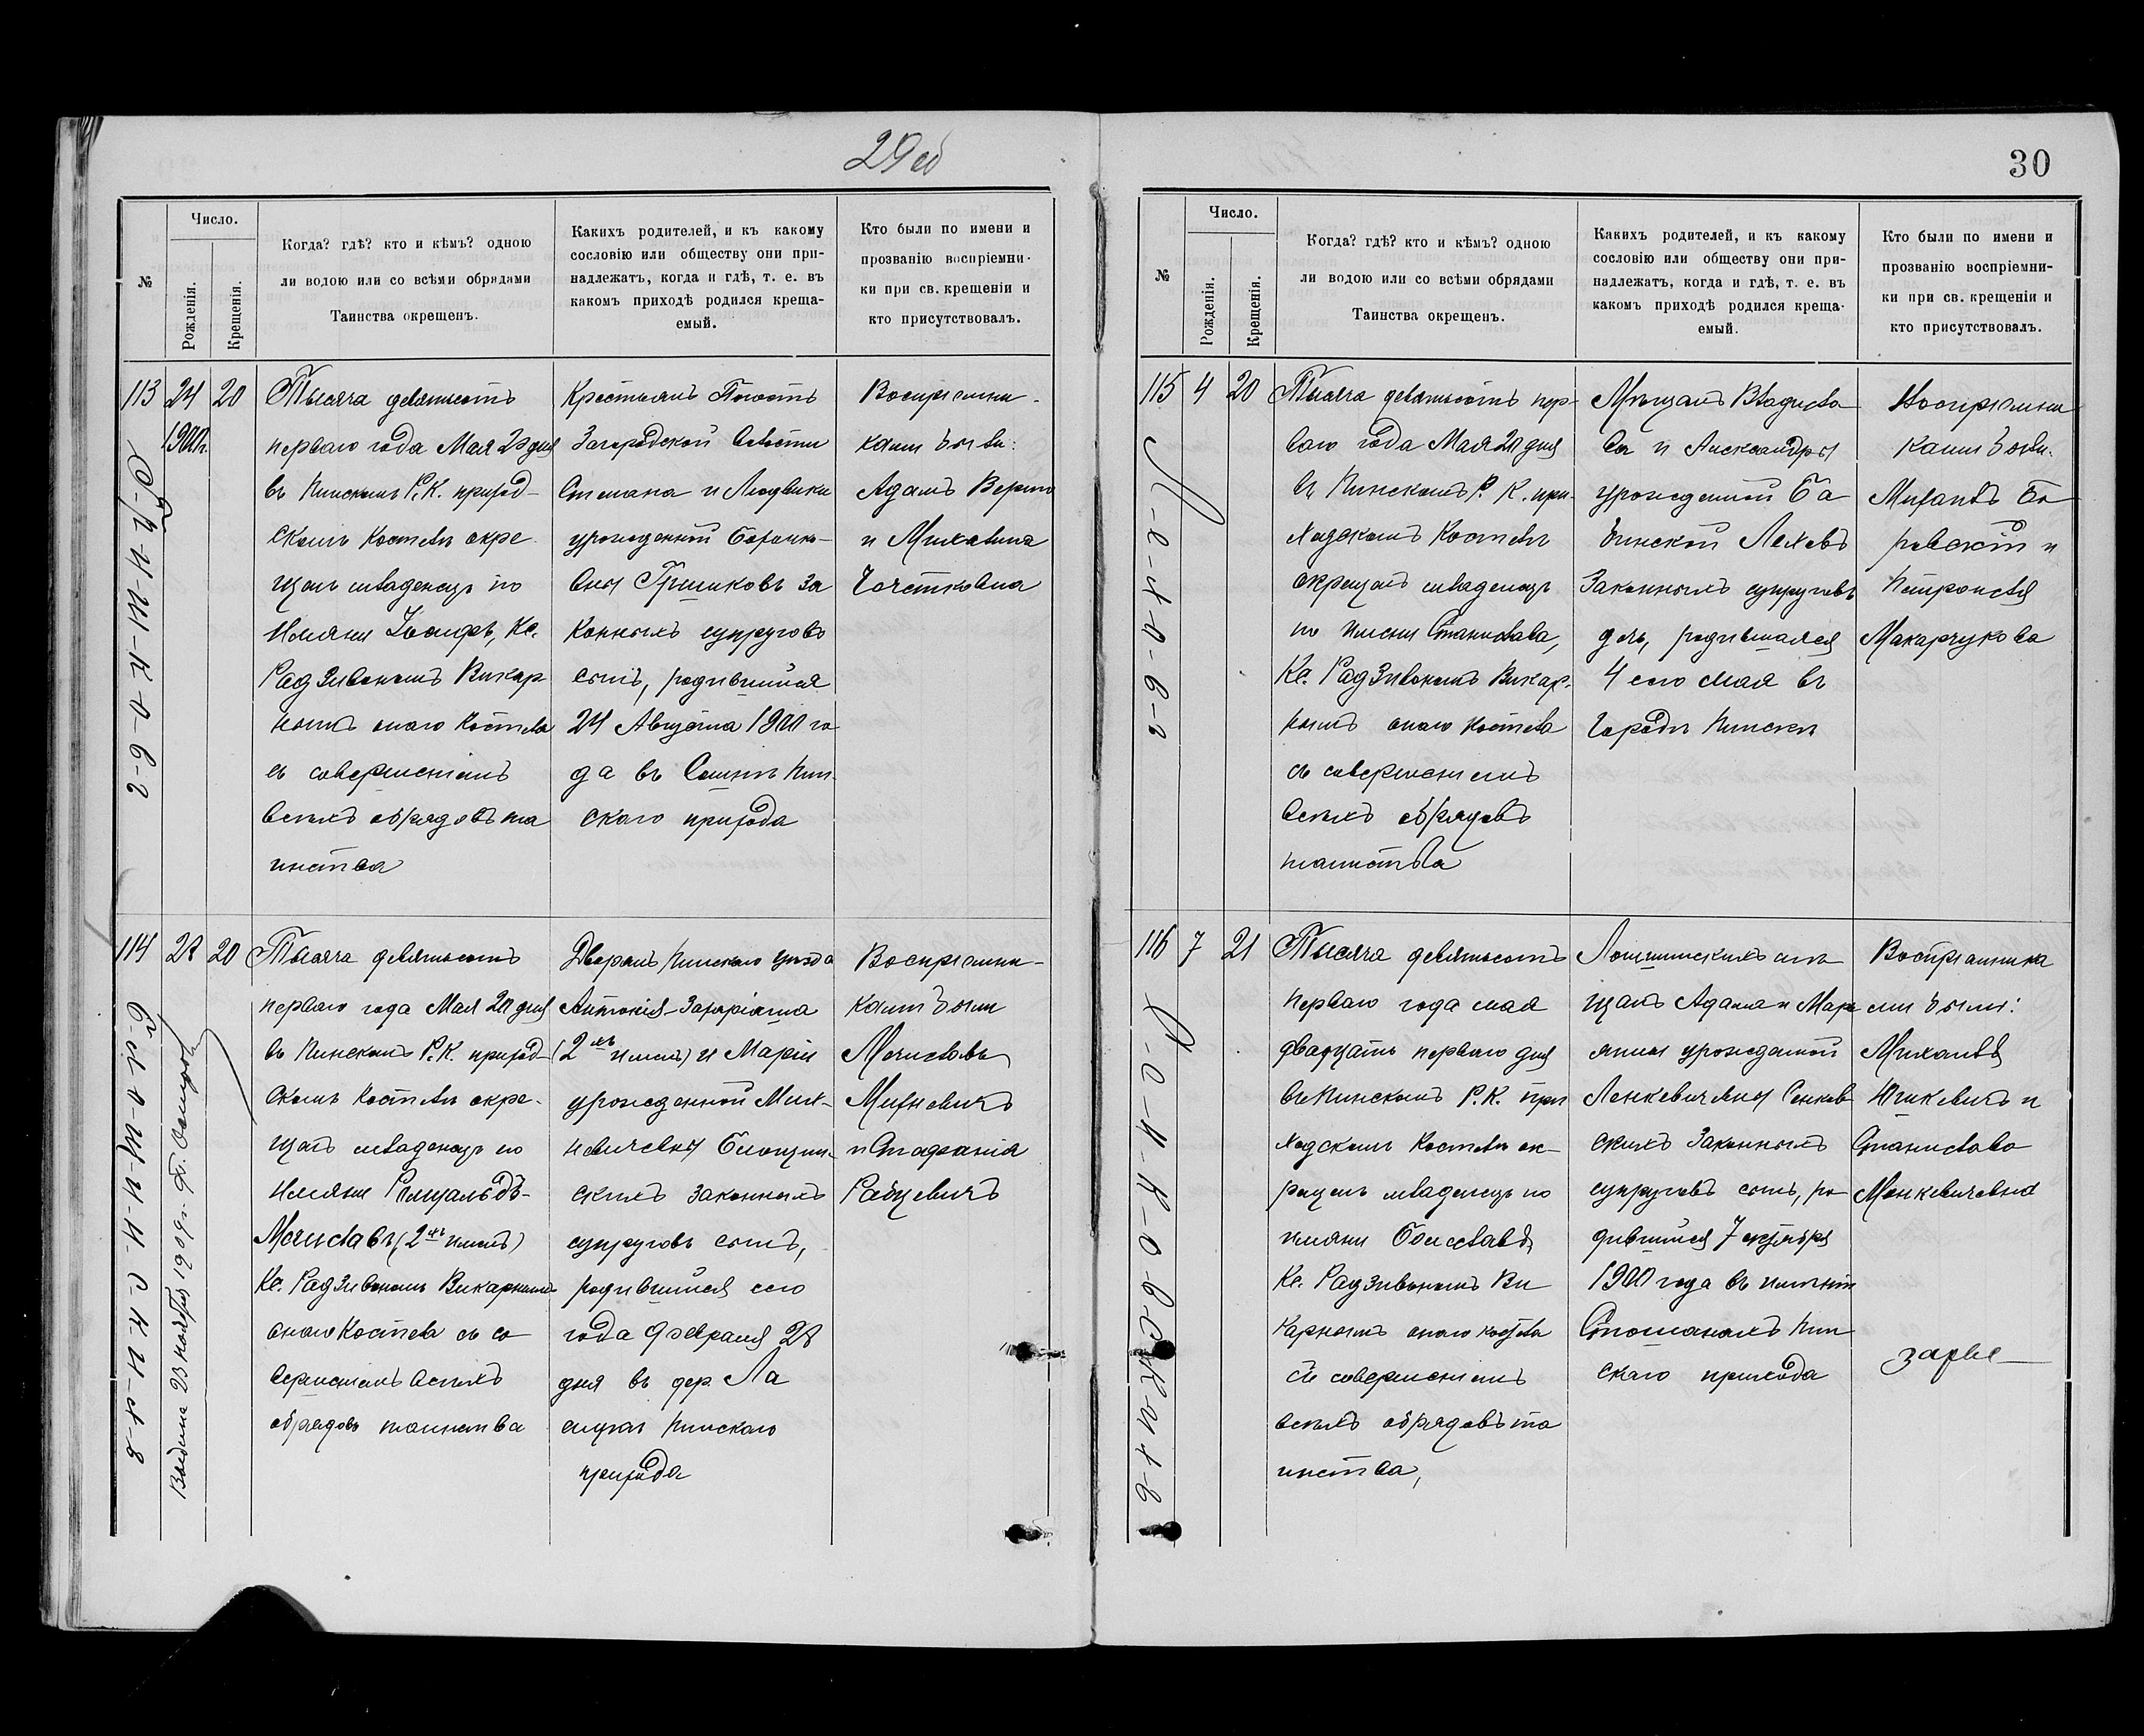 29 об
№
Число.
Рожденія.
Крещенія.
Когда? гдѣ? кто и кѣмъ? одною
ли водою или со всѣми обрядами
Таинства окрещенъ.
Какихъ родителей, и къ какому
сословію или обществу они при-
надлежатъ, когда и гдѣ, т. е. въ
какомъ приходѣ родился креща-
емый.
Кто были по имени и
прозванію воспріемни-
ки при св. крещеніи и
кто присутствовалъ.
113
24
1900 г.
20
Тысяча девятьсотъ
перваго года Мая 20 дня
въ Пинскомъ Р. К. приход-
скомъ Костелѣ окре-
щенъ младенецъ по
имяни Іосифъ, Кс.
Радзивономъ Викар
нымъ онаго Костела
съ совершеніемъ
всѣхъ обрядовъ та
инства
Крестьянъ Погостъ
Загородской волости
Степана и Людвики
урожденной
за
конныхъ супруговъ
сынъ, родившійся
24 Августа 1900 го
да въ Пин-
скаго прихода
Воспріемни-
ками были:
Адамъ
и Михалина
114
28
20
Тысяча девятьсотъ
перваго года Мая 20 дня
въ Пинскомъ Р. К. приход-
скомъ Костелѣ окре-
щенъ младенецъ по
имяни Ромуальдъ-
Мечиславъ (2 имянъ)
Кс. Радзивономъ Викарнымъ
онаго Костела съ со
вершеніемъ всѣхъ
обрядовъ таинства
Дворянъ Пинскаго уѣзда
Антонія-
(2 имянъ) и Маріи
урожденной Мих-
невичевны
скихъ законныхъ
супруговъ сынъ,
родившійся сего
года Февраля 28
дня въ дер.
Пинскаго
прихода
Воспріемни-
ками были
Мечиславъ
Михневичъ
и Стефанія
Рабцевичъ
30
№
Число.
Рожденія.
Крещенія.
Когда? гдѣ? кто и кѣмъ? одною
ли водою или со всѣми обрядами
Таинства окрещенъ.
Какихъ родителей, и къ какому
сословію или обществу они при-
надлежатъ, когда и гдѣ, т. е. въ
какомъ приходѣ родился креща-
емый.
Кто были по имени и
прозванію воспріемни-
ки при св. крещеніи и
кто присутствовалъ.
115
4
20
Л-е-х-о-в-а
Тысяча девятьсотъ пер-
ваго года Мая 20 дня
въ Пинскомъ Р. К. при-
ходскомъ Костелѣ
окрещенъ младенецъ
по имени Станислава,
Кс. Радзивономъ Викар-
нымъ онаго Костела
съ совершеніемъ
всѣхъ обрядовъ
таинства
Мѣщанъ Владисла
ва и Александры
урожденной Ба
бинской Леховъ
Законныхъ супруговъ
дочь, родившаяся
4 сего мая въ
Городѣ Пинскѣ
Воспріемни
ками были:
Михаилъ Бо
ровскій и
Петронеля
Макарчукова
116
7
21
С-е-н-к-о-в-с-к-і-й
Тысяча девятьсотъ
перваго года мая
двадцать перваго дня
въ Пинскомъ Р. К. при
ходскомъ Костелѣ ок-
рещенъ младенецъ по
имяни Болеславъ,
Кс. Радзивономъ Ви
карнымъ онаго костела
съ совершеніемъ
всѣхъ обрядовъ та
инства,
Логишинскихъ мѣ
щанъ Адама и Мар
янны урожденной
Ленкевичевны Сенков
скихъ Законныхъ
супруговъ сынъ, ро
дившійся 7 октября
1900 года въ имѣніи
Пин
скаго прихода
Воспріемника
ми были:
Михаилъ
Юшкевичъ и
Станислава